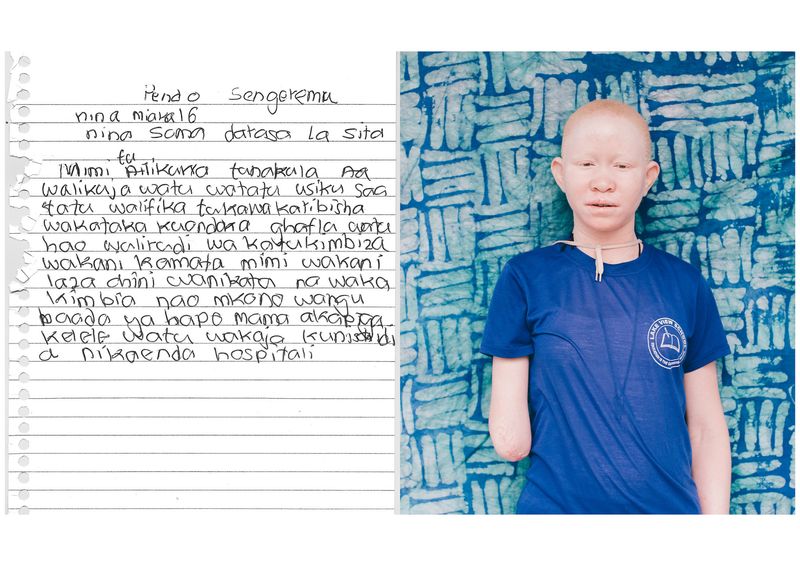 Pendo Sengerema
nina miaka 16
nina soma darasa la sita
tu
Mimi nilikuwa tunakula
walikuja watu watatu usiku saa
tatu walifika tukawakaribisha
wakataka kuondoka ghafla watu
hao walirudi wakatukimbiza
wakani kamata mimi wakani
laza chini wanikata na waka
kimbia nao mkono wangu
baada ya hapo mama akapiga
kelele watu wakaja
a nikaenda hospitali
LAKE VIEW